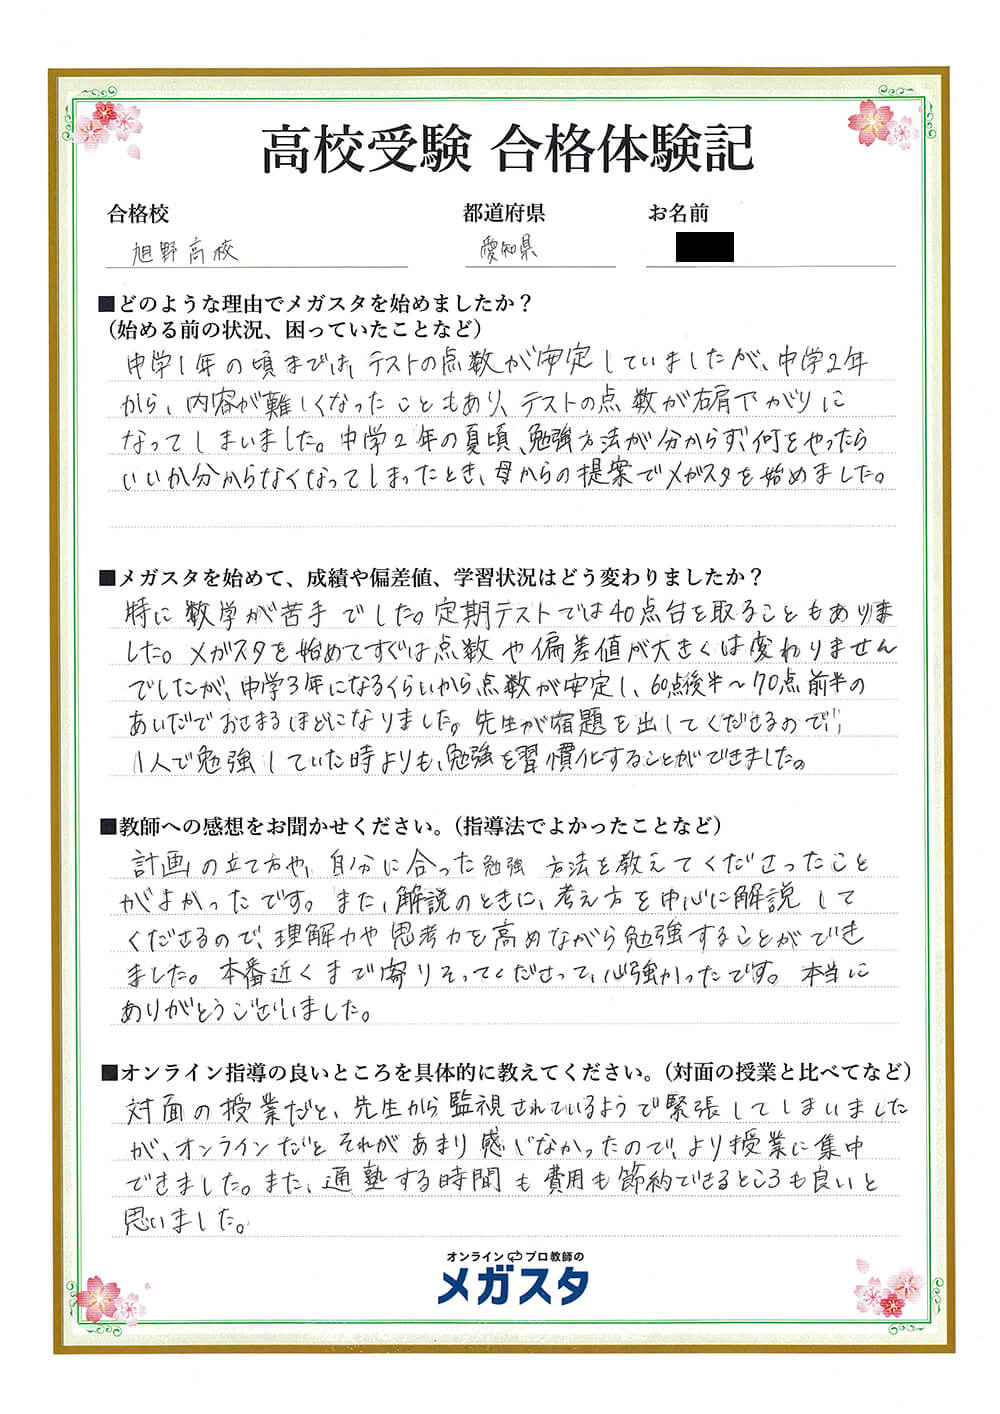 高校受験 合格体験記
合格校 都道府県 お名前
旭野高校 愛知県
■どのような理由でメガスタを始めましたか？
（始める前の状況、困っていたことなど）
中学1年の頃までは、テストの点数が安定していましたが、中学2年
から、内容が難しくなったこともあり、テストの点数が右肩下がりに
なってしまいました。中学2年の夏頃、勉強方法が分からず何をやったら
いいか分からなくなってしまったとき、母からの提案でメガスタを始めました。
■メガスタを始めて、成績や偏差値、学習状況はどう変わりましたか？
特に数学が苦手でした。定期テストでは40点台を取ることもありま
した。メガスタを始めてすぐは点数や偏差値が大きくは変わりません
でしたが、中学3年になるくらいから点数が安定し、60点後半～70点前半の
あいだでおさまるほどになりました。先生が宿題を出してくださるので、
1人で勉強していた時よりも、勉強を習慣化することができました。
■教師への感想をお聞かせください。（指導法でよかったことなど）
計画の立て方や、自分に合った勉強方法を教えてくださったこと
がよかったです。また、解説のときに、考え方を中心に解説して
くださるので、理解力や思考力を高めながら勉強することができ
ました。本番近くまで寄りそってくださって、心強かったです。本当に
ありがとうございました。
■オンライン指導の良いところを具体的に教えてください。（対面の授業と比べてなど）
対面の授業だと、先生から監視されているようで緊張してしまいました
が、オンラインだとそれがあまり感じなかったので、より授業に集中
できました。また、通塾する時間も費用も節約できるところも良いと
思いました。
オンライン プロ教師の
メガスタ